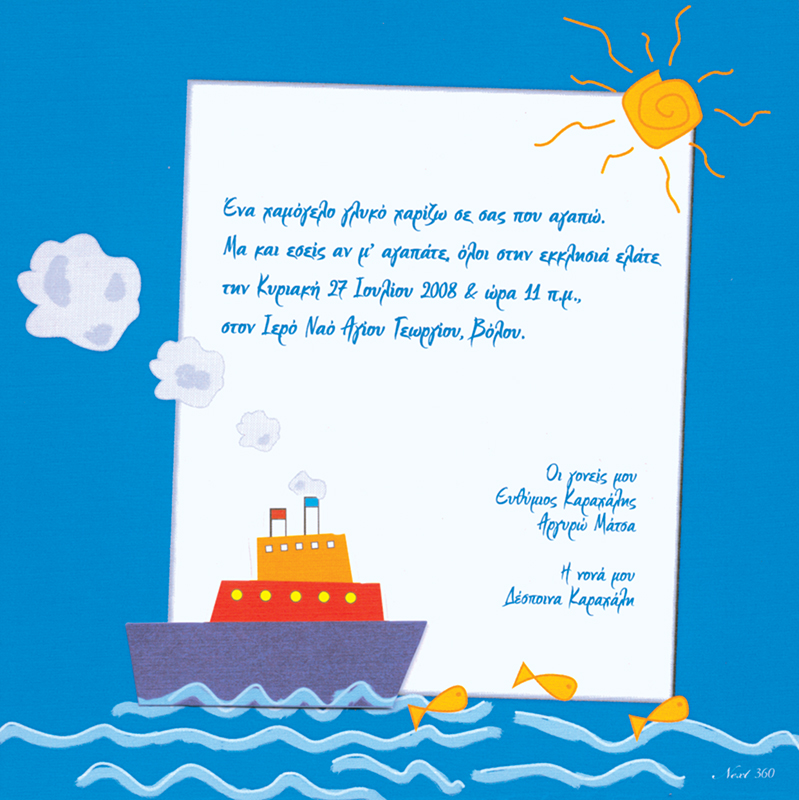 Ένα χαμόγελο γλυκό χαρίζω σε σας που αγαπώ.
Μα και εσείς αν μ' αγαπάτε, όλοι στην εκκλησιά ελάτε
την Κυριακή 27 Ιουλίου 2008 & ώρα 11 π.μ.,
στον Ιερό Ναό Αγίου Γεωργίου, Βόλου.
Οι γονείς μου
Ευθύμιος Καραχάλης
Αργυρώ Μάτσα
Η νονά μου
Δέσποινα Καραχάλη
Next 360